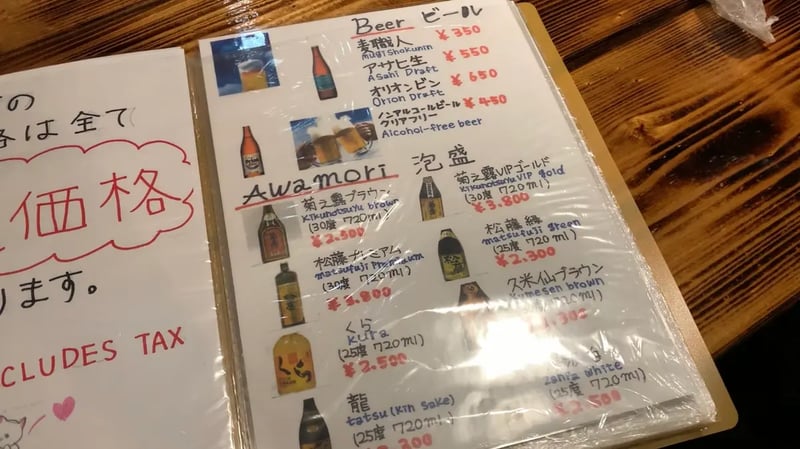 の
は全て
価格
ります。
CLUDES TAX
Beer ビール
麦職人 ¥350
mugishokunin
アサヒ生 ¥550
Asahi Draft
オリオンビン ¥650
Orion Draft
ノンアルコールビール ¥450
クリアフリー
Alcohol-free beer
Awamori 泡盛
菊之露ブラウン
kikunotsuyu brown
(30度 720ml)
¥2.500
菊之露VIPゴールド
kikunotsuyu VIP gold
(30度 720ml)
¥3.800
松藤プレミアム
matsufuji Premium
(30度 720ml)
¥3.800
松藤緑
matsufuji green
(25度 720ml)
¥2.300
くら
kura
(25度 720ml)
¥2.500
久米仙ブラウン
kumesen brown
720ml)
龍
tatsu (kin sake)
(25度 720ml)
white
(25度 720ml)
¥2.500